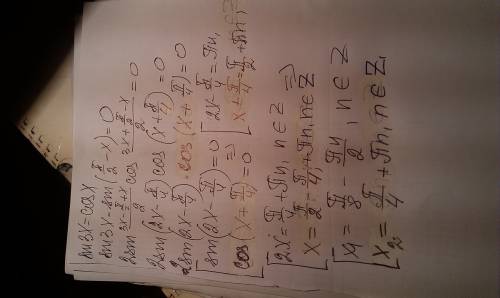 sin3x=cosx
sin3x-sin(π/2-x)=0
2sin (3x-π/2+x)/2 cos (3x+π/2-x)/2=0
2sin(2x-π/4)cos(x+π/4)=0
2sin(2x-π/4)·cos(x+π/4)=0
[sin(2x-π/4)=0 => [2x-π/4=πn,
[cos(x+π/4)=0 [x+π/4=π/2+πn, =>
[2x=π/4+πn, n∈z =>
[x=π/2-π/4+πn, n∈Z
[x₁=π/8-πn/2, n∈Z
[x₂=π/4+πn, n∈Z,